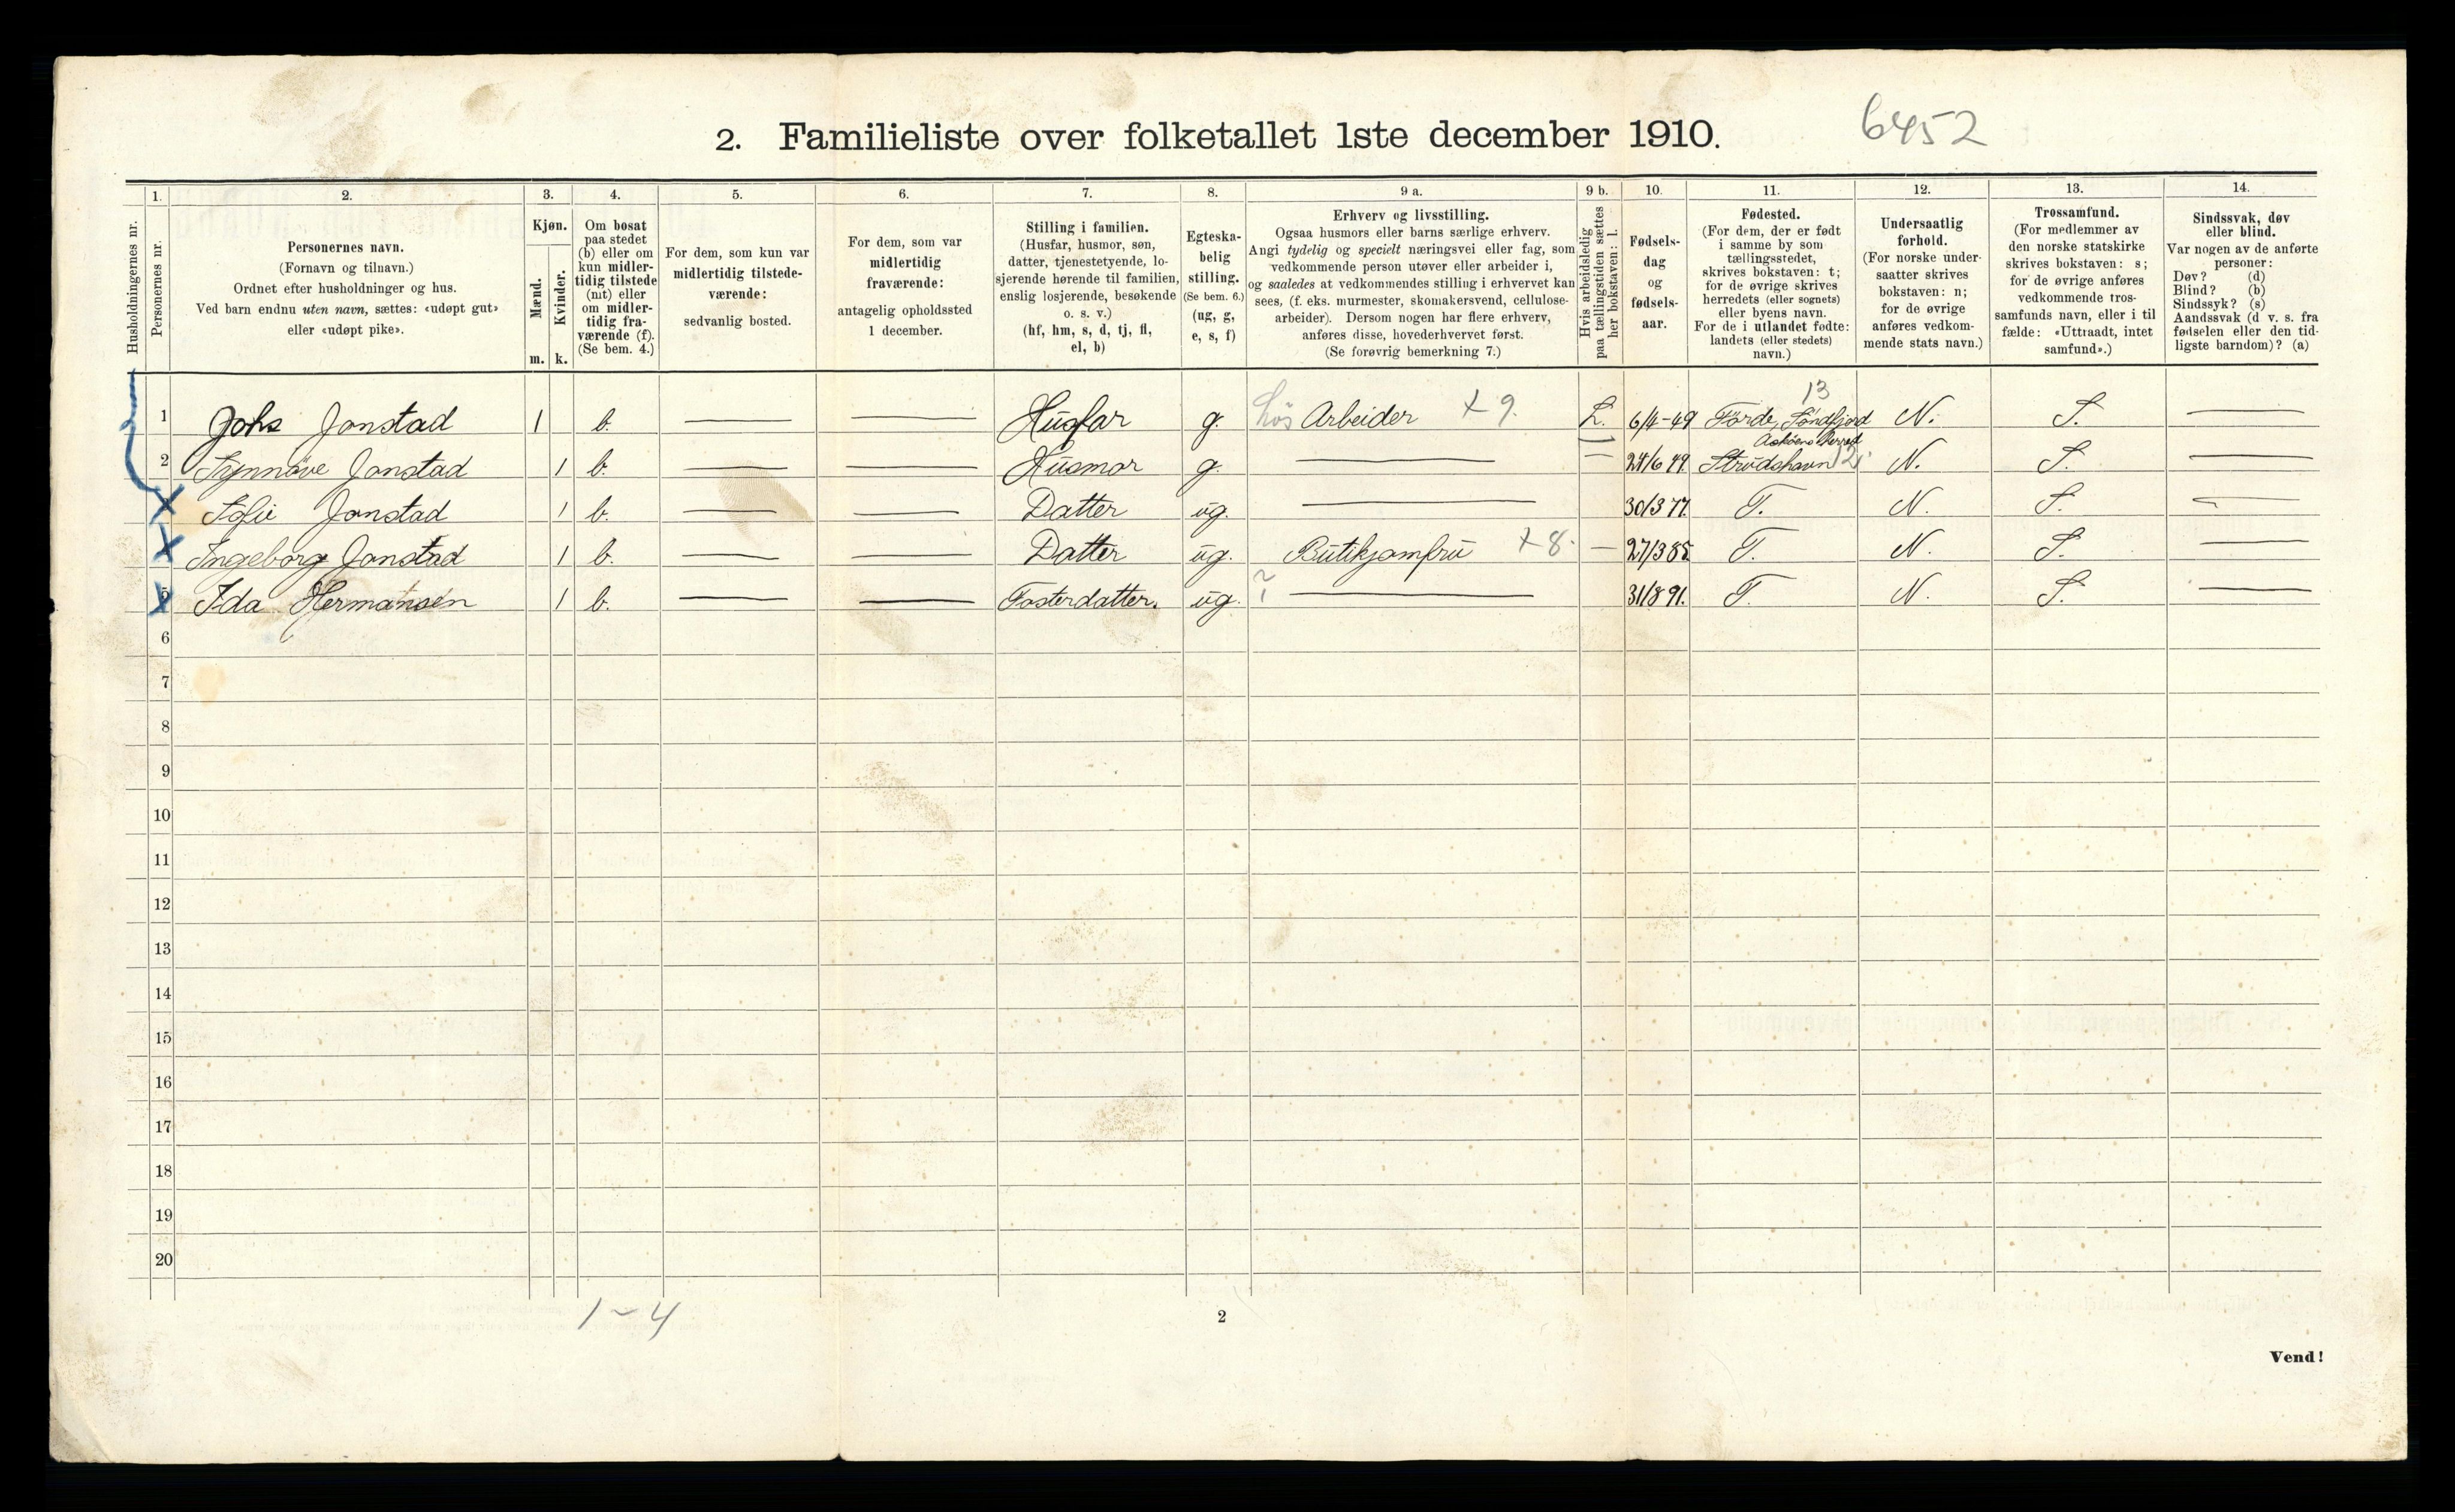 6452
2. Familieliste over folketallet 1ste december 1910.
1. 2. 3. 4. 5. 6. 7. 8. 9 a. 9 b. 10. 11. 12. 13. 14.
Husholdningernes nr.
Personernes nr.
Personernes navn.
(Fornavn og tilnavn.)
Ordnet efter husholdninger og hus.
Ved barn endnu uten navn, sættes: «udøpt gut»
eller «udøpt pike».
Kjøn.
Mænd.
Kvinder.
m. k.
Om bosat
paa stedet
(b) eller om
kun midler-
tidig tilstede
(mt) eller
om midler-
tidig fra-
værende (f).
(Se bem. 4.)
For dem, som kun var
midlertidig tilstede-
værende:
sedvanlig bosted.
For dem, som var
midlertidig
fraværende:
antagelig opholdssted
1 december.
Stilling i familien.
(Husfar, husmor, søn,
datter, tjenestetyende, lo-
sjerende hørende til familien,
enslig losjerende, besøkende
o. s. v.)
(hf, hm, s, d, tj, fl,
el, b)
Egteska-
belig
stilling.
(Se bem. 6.)
(ug, g,
e, s, f)
Erhverv og livsstilling.
Ogsaa husmors eller barns særlige erhverv.
Angi tydelig og specielt næringsvei eller fag, som
vedkommende person utøver eller arbeider i,
og saaledes at vedkommendes stilling i erhvervet kan
sees, (f. eks. murmester, skomakersvend, cellulose-
arbeider). Dersom nogen har flere erhverv,
anføres disse, hovederhvervet først.
(Se forøvrig bemerkning 7.)
Hvis arbeidsledig
paa tællingstiden sættes
her bokstaven: l.
Fødsels-
dag
og
fødsels-
aar.
Fødested.
(For dem, der er født
i samme by som
tællingsstedet,
skrives bokstaven: t;
for de øvrige skrives
herredets (eller sognets)
eller byens navn.
For de i utlandet fødte:
landets (eller stedets)
navn.)
Undersaatlig
forhold.
(For norske under-
saatter skrives
bokstaven: n;
for de øvrige
anføres vedkom-
mende stats navn.)
Trossamfund.
(For medlemmer av
den norske statskirke
skrives bokstaven: s;
for de øvrige anføres
vedkommende tros-
samfunds navn, eller i til
fælde: «Uttraadt, intet
samfund».)
Sindssvak, døv
eller blind.
Var nogen av de anførte
personer:
Døv? (d)
Blind? (b)
Sindssyk? (s)
Aandssvak (d v. s. fra
fødselen eller den tid-
ligste barndom)? (a)
13
1 Johs Jonstad 1 b. — — Husfar g. Løs Arbeider + 9. L. 6/4-49 Førde, Søndfjord N. S. —
Askøens Herred
2 Synnöve Jonstad 1 b. — — Husmor g. — — 24/6 49. Strudshavn 12 N. S. —
Sofie Jonstad 1 b. — — Datter ug. — 30/3 77. T. N. S. —
Ingeborg Jonstad 1 b. — — Datter ug. Butikjomfru + 8. — 27/3 85. T. N. S. —
5 Ida Hermansen 1 b. — — Fosterdatter. ug. ? — 31/8 91. T. N. S. —
6
7
8
9
10
11
12
13
14
15
16
17
18
19
20
1 ~ 4
2
Vend!